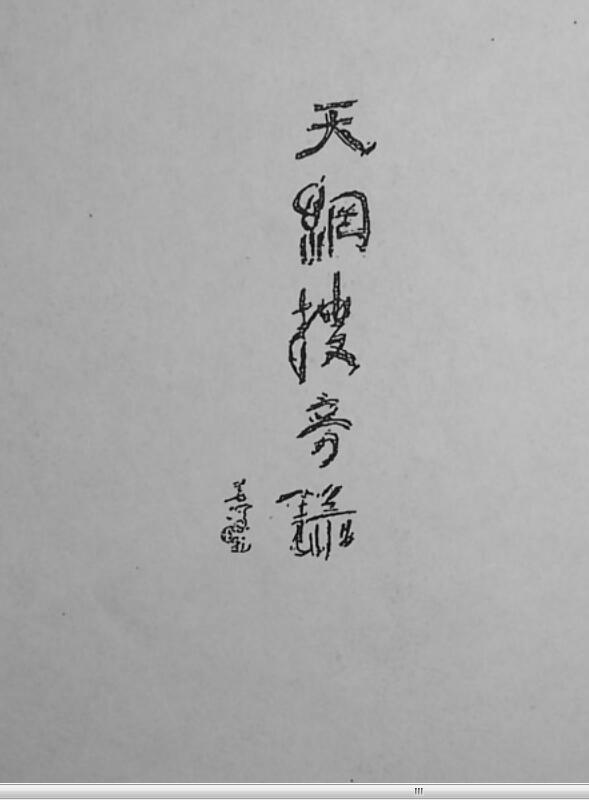 天網搜奇錄